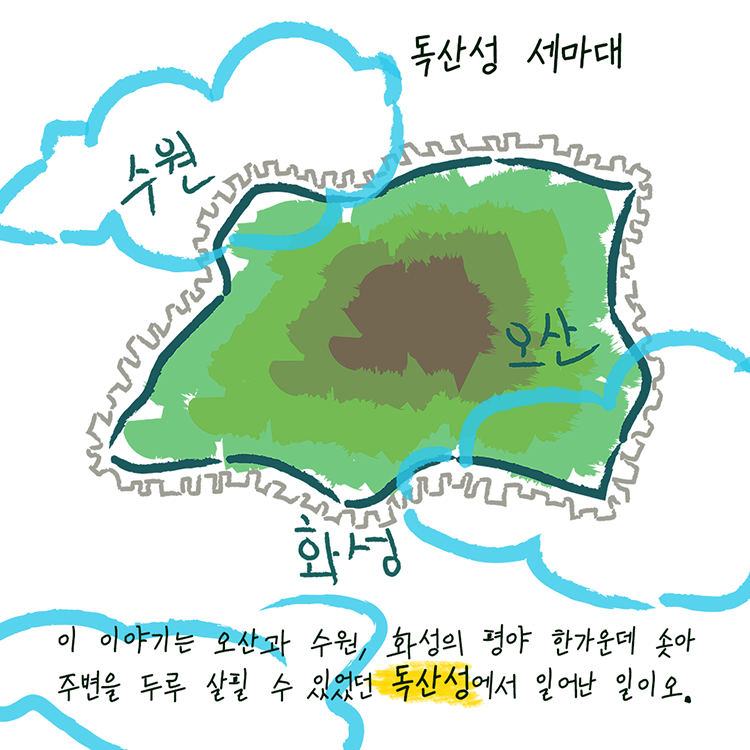 독산성 세마대
수원
오산
화성
이 이야기는 오산과 수원, 화성의 평야 한가운데 솟아
주변을 두루 살필 수 있었던 독산성에서 일어난 일이오.